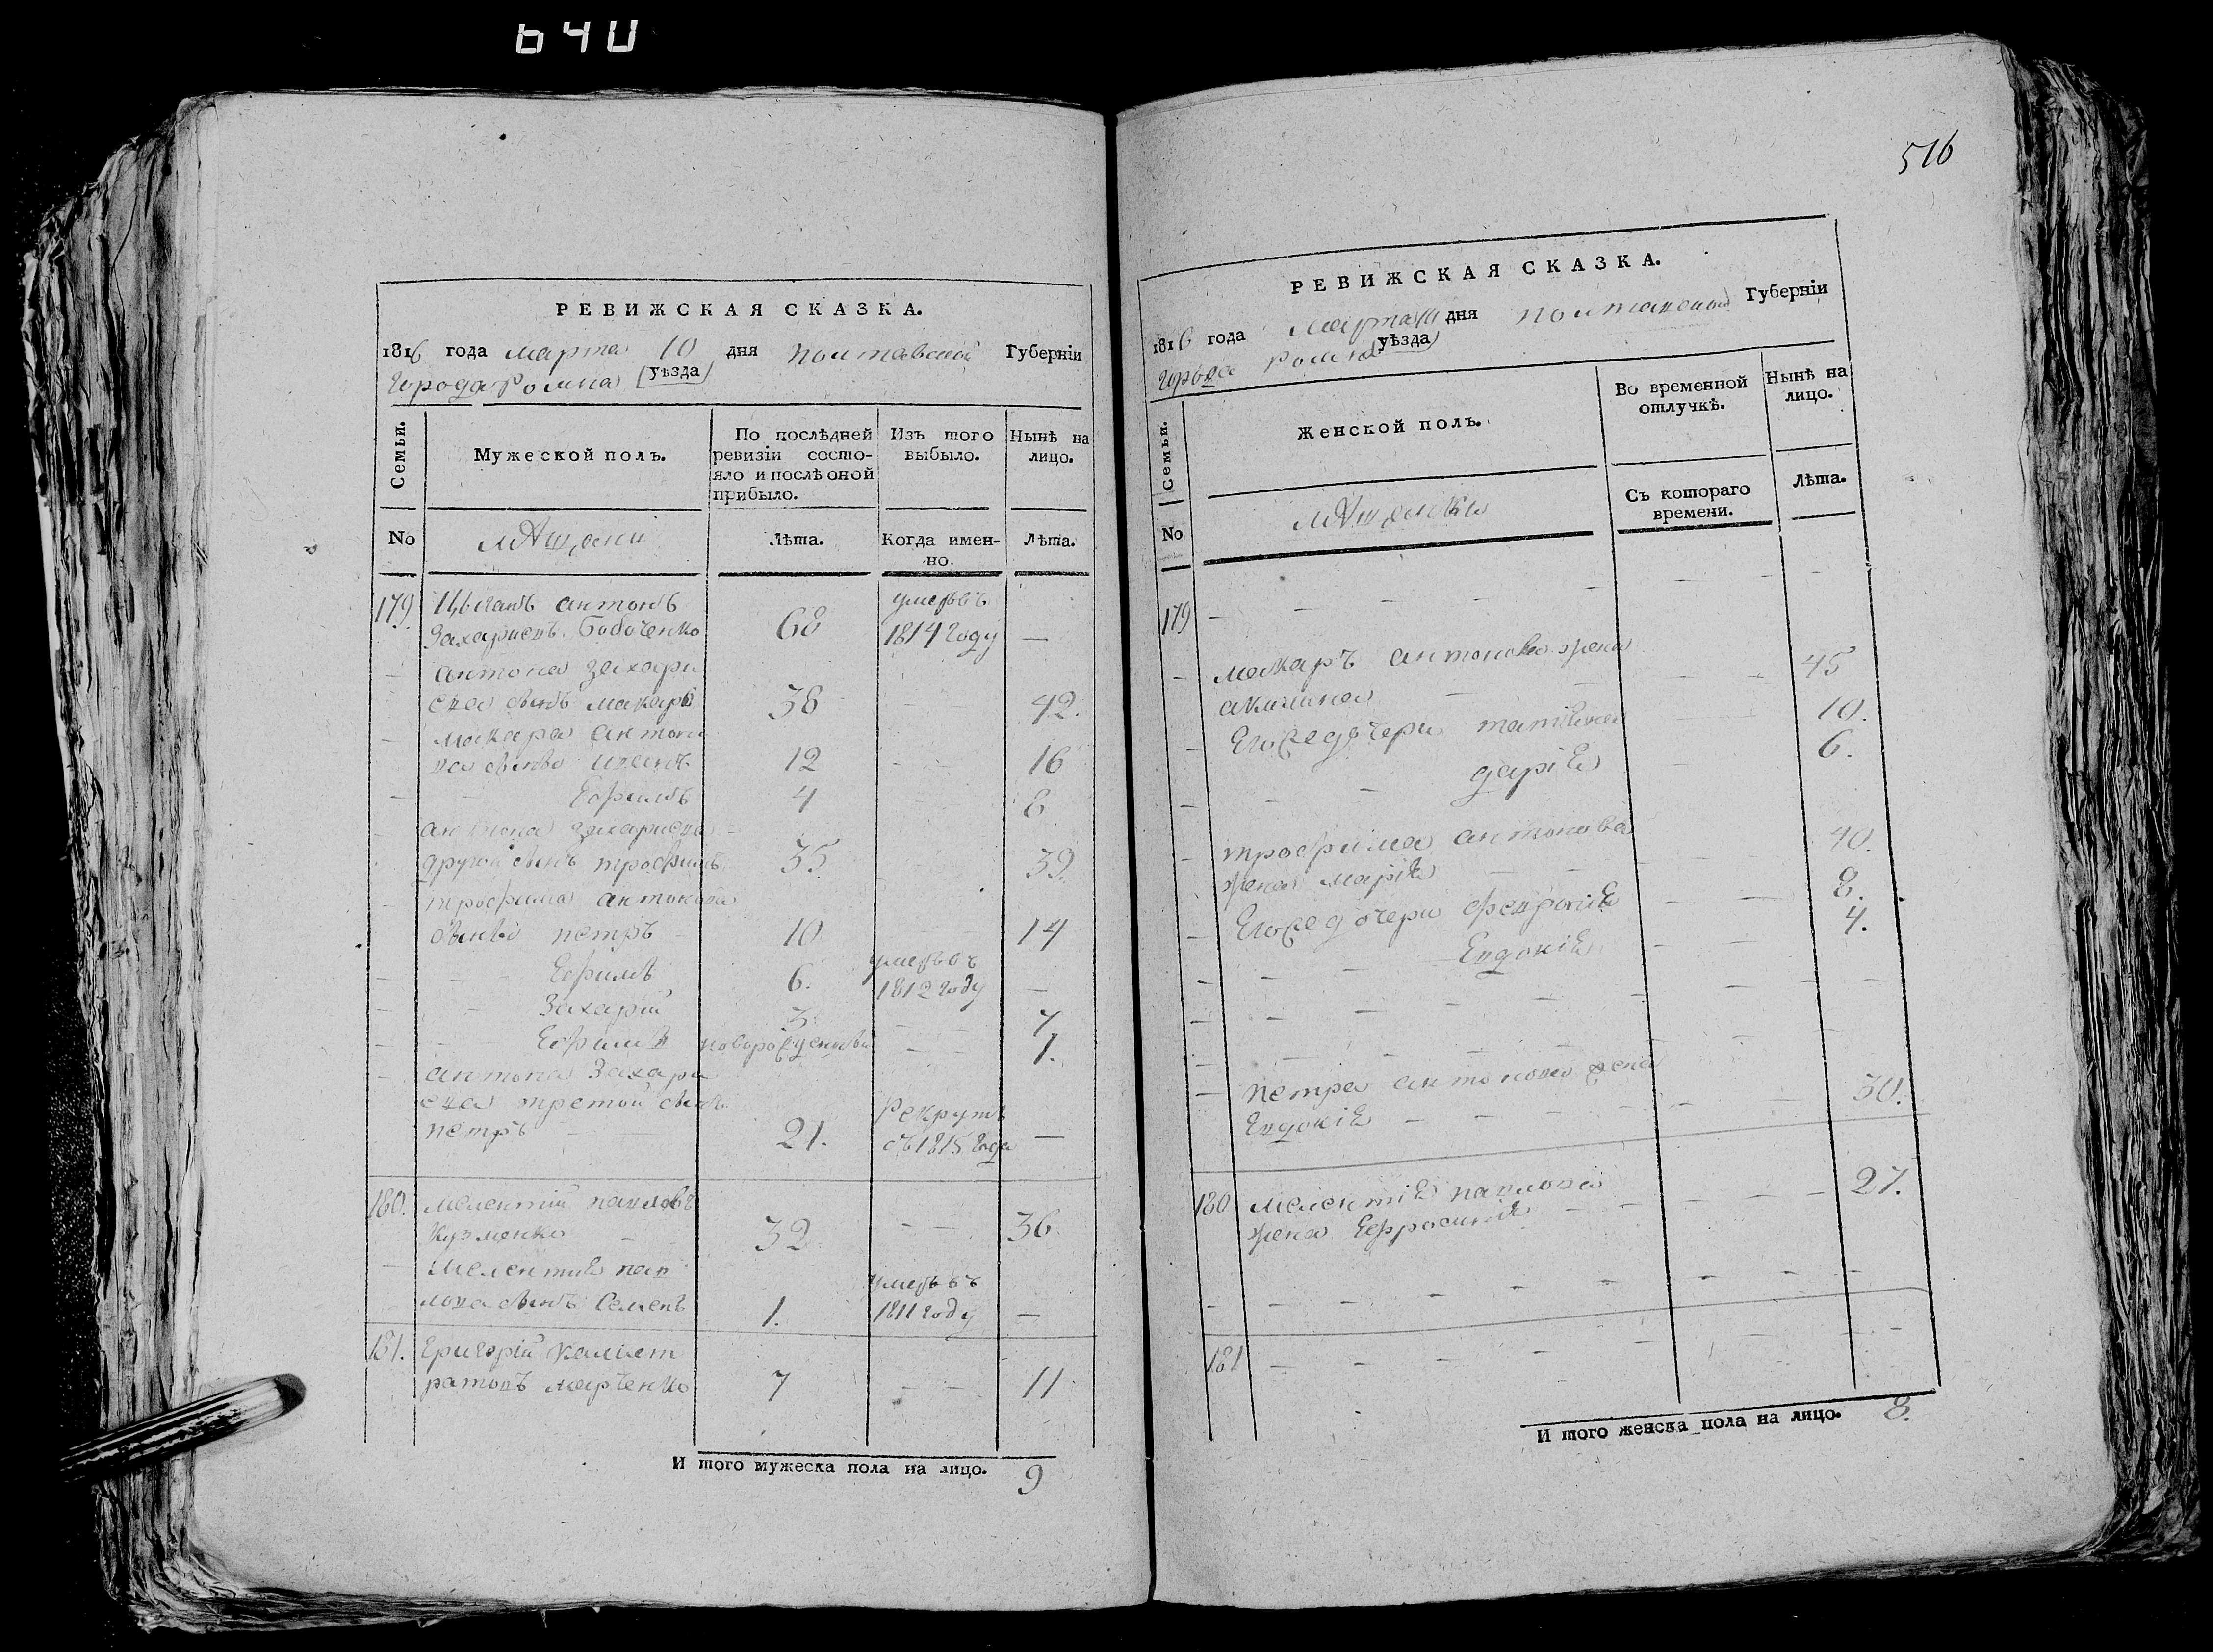 640
РЕВИЖСКАЯ СКАЗКА.
1816 года марта 10 дня Полтавской Губерніи
Города Ромна уѣзда
Семьи.
Мужеской полъ.
По послѣдней ревизіи состо-
яло и послѣ оной прибыло.
Изъ того выбыло.
Нынѣ на лицо.
No
Лѣта.
Когда имен-
но.
Лѣта.
179. антонъ умервъ
Захариевъ 68 1814 году —
— антона захари
ева сынъ макаръ 38 — 42.
— макара антоно
ва сыны иванъ 12 — — 16
— — Ефимъ 4 8
— антона захариева
другой сынъ трофимъ 35. 39.
— трофима антонова
сыны петръ 10. 14
— — Ефимъ 6. умервъ 1812 году —
— — Захарій 3 — — 7
— — Ефимъ новорожденный — — 1.
— антона Захари
ева третой сынъ
петръ — — 21. Рекрутъ съ 1815 года —
180. мелентий павловъ
Кузменко — 32 — — 36.
— Мелентия пав умервъ
лова сынъ Семенъ 1. 1811 году —
181. Григорій калист
ратовъ марченко 7 — — 11
И того мужеска пола на лицо. 9
516
РЕВИЖСКАЯ СКАЗКА.
1816 года Марта 10 дня Полтавской Губерніи
города Ромна уѣзда
Семьи.
Женской полъ.
Во временной отлучкѣ.
Нынѣ на лицо.
No
Съ котораго времени.
Лѣта.
179 — — — — — — — —
— макара антонова жена
акилина — — — — 45
— Его же дочери татіяна — — 10.
— — — дарія — 6.
— трофима антонова
жена марія — — — — 40.
— Его же дочери феврония — — 8.
— — — Евдокія — — 4.
— — — — — — — — —
— — — — — — —
— петра антонова жена
Евдокія — — — — — — 30.
180 мелентія павлова
жена Ефросинія — — — — — 27.
— — — — — — — — —
181 — — — — — — — —
И того женска пола на лицо. 8.